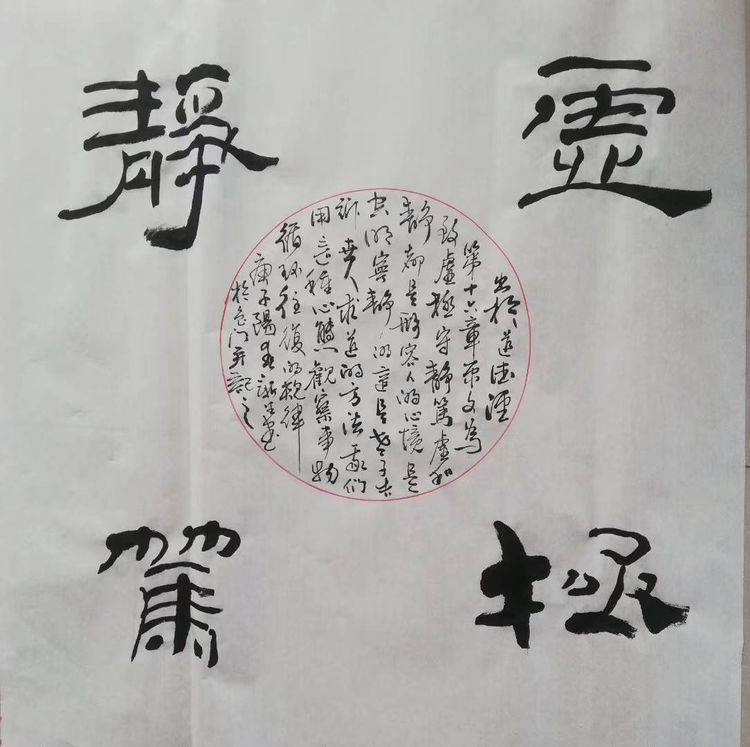 虛極
靜篤
出於道德經
第十六章原文為
致虛極守靜篤虛和
靜都是形容人的心境是
空明寧靜的這是老子告
訴人求道的方法我們
用這種心態觀察事物
循環往復的規律
庚子陽春書
於門并記之